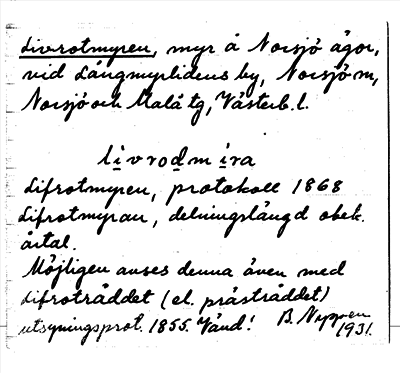 Livrotmyren, myr å Norsjö ägor,
vid Långmyrlidens by, Norsjö sn,
Norsjö och Malå tg, Västerb. l.
livrodmira
Lifrotmyren, protokoll 1868
Lifrotmyran, delningslängd obek.
årtal.
Möjligen avses denna även med
Lifroträddet (el. prästräddet)
utsyningsprot. 1855. Vänd!
B. Nygren
1931.